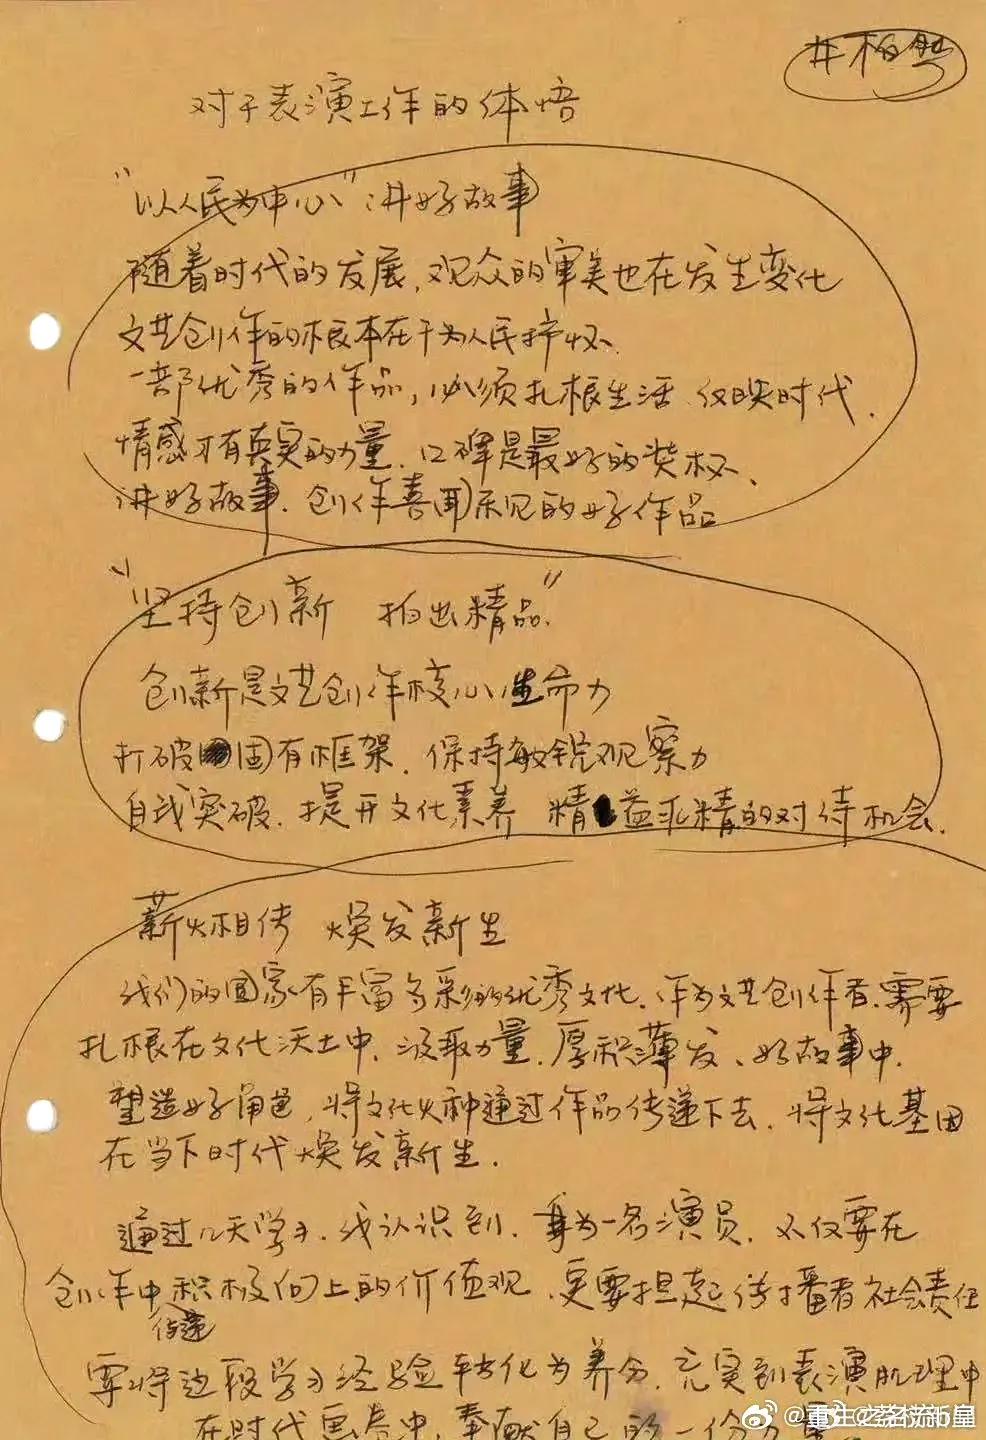 井柏然
对于表演工作的体悟
"以人民为中心"讲好故事
随着时代的发展,观众的审美也在发生变化
文艺创作的根本在于为人民抒怀、
一部优秀的作品,必须扎根生活、反映时代、
情感才有真实的力量、口碑是最好的奖杯、
讲好故事、创作喜闻乐见的好作品
"坚持创新 拍出精品"
创新是文艺创作核心生命力
打破固有框架、保持敏锐观察力
自我突破、提升文化素养 精益求精的对待机会、
薪火相传 焕发新生
我们的国家有丰富多彩的优秀文化、作为文艺创作者、需要
扎根在文化沃土中、汲取力量、厚积薄发、好故事中、
塑造好角色,将文化火种通过作品传递下去、将文化基因
在当下时代焕发新生、
通过几天学习、我认识到、身为一名演员、不仅要在
创作中积极向上的价值观、更要担起传播者社会责任
传递
要将这段学习经验转化为养分、充实到表演肌理中
在时代画卷中、奉献自己的一份力量